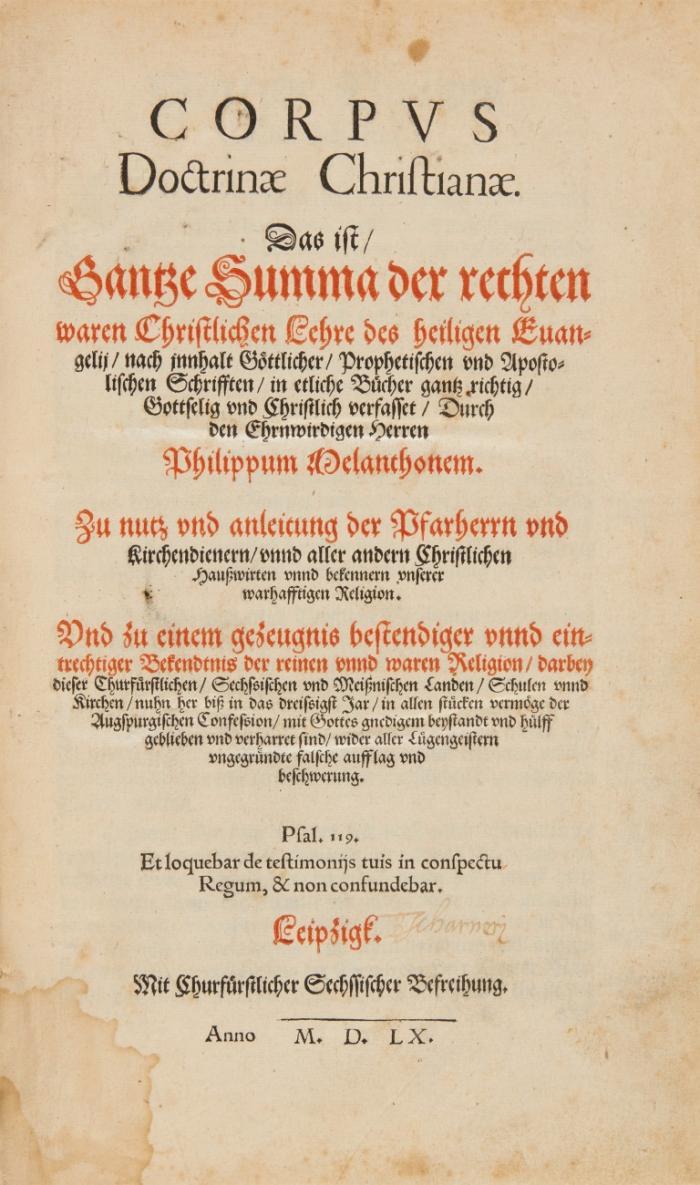 CORPVS
Doctrinæ Chriſtianæ.
Das iſt/
Gantze Summa der rechten
waren Chriſtlichen Lehre des heiligen Euan-
gelij/ nach jnnhalt Göttlicher/ Prophetiſchen vnd Apoſto-
liſchen Schrifften/ in etliche Bücher gantz richtig/
Gottſelig vnd Chriſtlich verfaſſet/ Durch
den Ehrnwirdigen Herren
Philippum Melanthonem.
Zu nutz vnd anleitung der Pfarherrn vnd
Kirchendienern/ vnnd aller andern Chriſtlichen
Haußwirten vnnd bekennern vnſerer
warhafftigen Religion.
Vnd zu einem gezeugnis beſtendiger vnnd ein-
trechtiger Bekendtnis der reinen vnnd waren Religion/ darbey
dieſer Churfürſtlichen/ Sechſsiſchen vnd Meißniſchen Landen/ Schulen vnnd
Kirchen/ nuhn her biß in das dreiſsigſt Jar/ in allen ſtücken vermöge der
Augſpurgiſchen Confeſsion/ mit Gottes gnedigem beyſtandt vnd hülff
geblieben vnd verharret ſind/ wider aller Lügengeiſtern
vngegründte falſche aufflag vnd
beſchwerung.
Pſal. 119.
Et loquebar de teſtimonijs tuis in conſpectu
Regum, & non confundebar.
Leipzigk.
Mit Churfürſtlicher Sechſsiſcher Befreihung.
Anno M. D. LX.